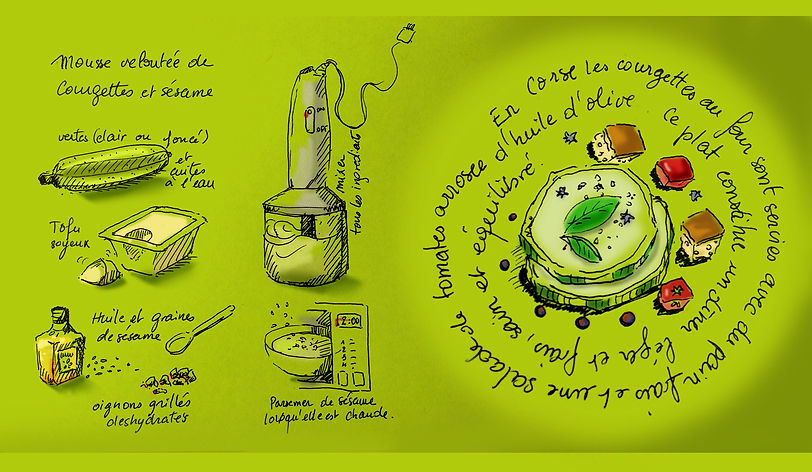 Mousse veloutée de
Courgettes et sésame
vertes (clair ou foncé)
et
cuites
à l'eau
Tofu
soyeux
Huile et graines
de sésame
oignons grillés
deshydratés
ON
OFF
mixer
tous les ingrédients
2:00
Parsemer de sésame
lorsqu'elle est chaude.
En Corse les courgettes au four sont servies avec du pain frais et une salade de tomates arrosée d'huile d'olive. Ce plat constitue un dîner léger et frais, sain et équilibré.